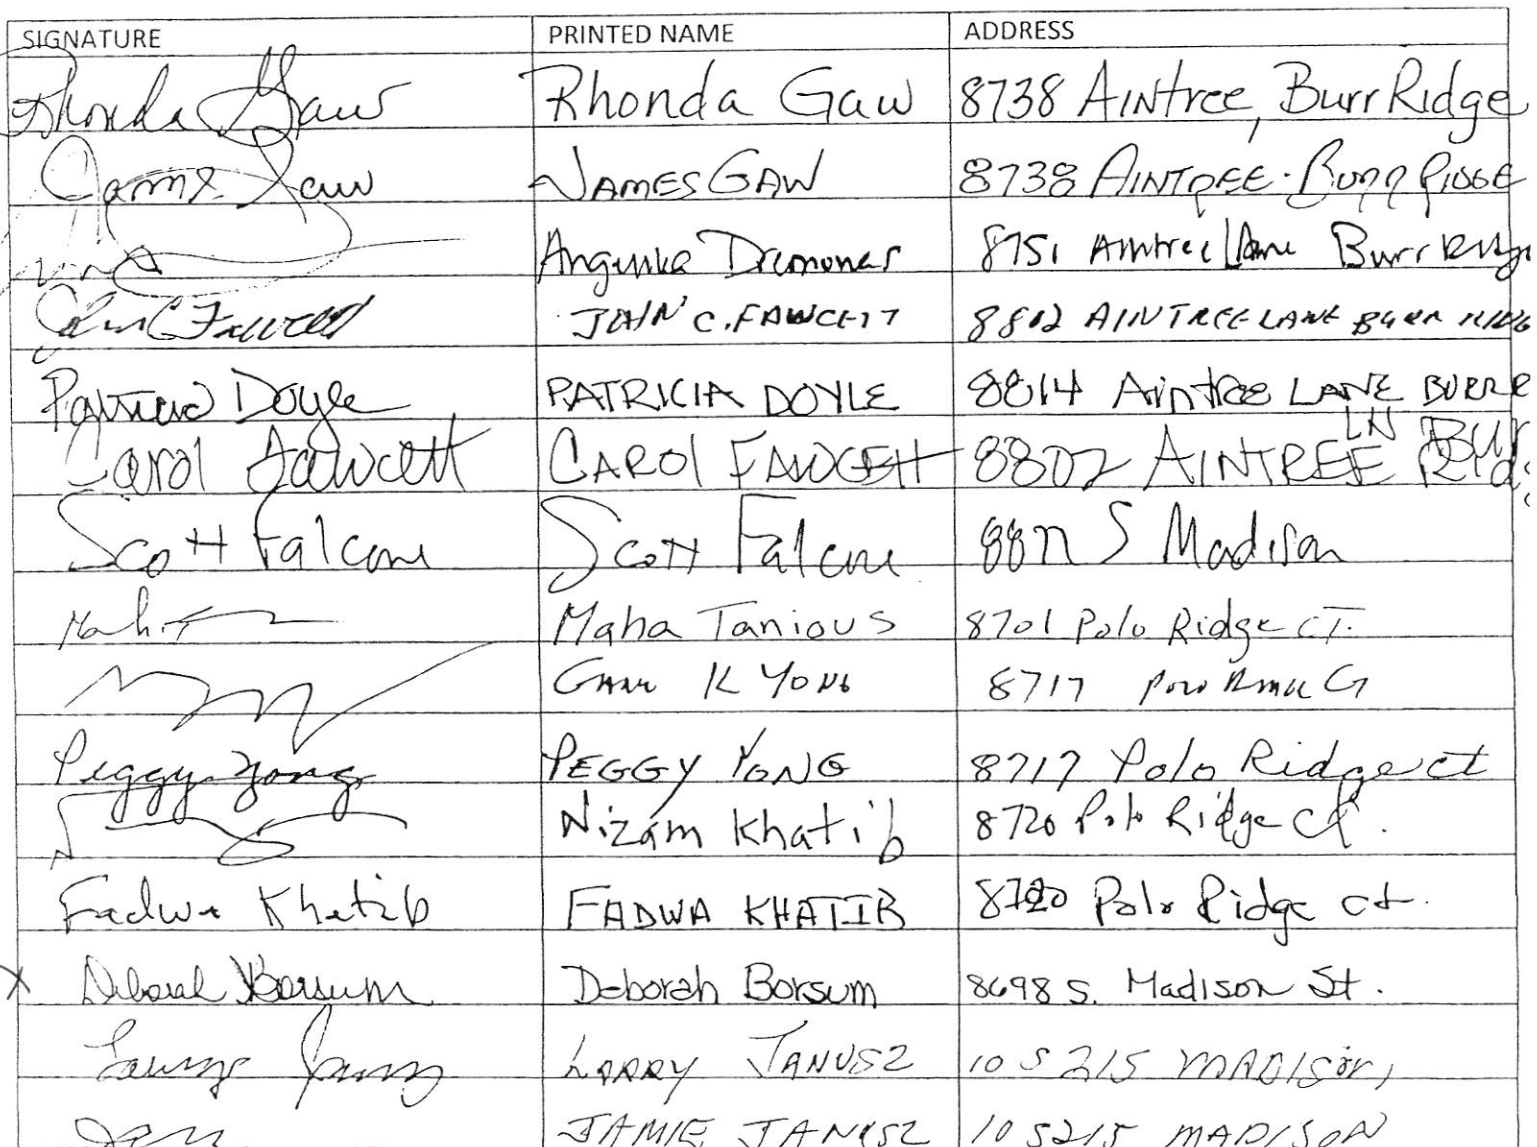 SIGNATURE PRINTED NAME ADDRESS
Rhonda Gaw Rhonda Gaw 8738 Aintree, Burr Ridge
James Gaw JAMES GAW 8738 AINTREE. BURR RIDGE
Dremonas 8751 Aintree Lane Burr Ridge
John C Fawcett JOHN C. FAWCETT 8802 AINTREE LANE BURR RIDG
Patricia Doyle PATRICIA DOYLE 8814 Aintree LANE BURR R
Carol Fawcett CAROL FAWCETT 8802 AINTREE LN Burr Ridg
Scott Falcone Scott Falcone S Madison
Maha Tanious 8701 Polo Ridge CT.
K YONG 8717 Polo Ridge CT
Peggy Yong PEGGY YONG 8717 Polo Ridge ct
Nizam Khatib 8720 Polo Ridge Ct.
Fadwa Khatib FADWA KHATIB 8720 Polo Ridge ct.
X Deborah Borsum Deborah Borsum 8698 S. Madison St.
LARRY JANUSZ 10 S 215 MADISON,
JAMIE JANUSZ 10 S 215 MADISON